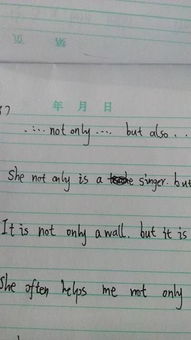 年 月 日
.... not only .... but also ..
She not only is a singer. but
It is not only a wall. but it is
She often helps me not only